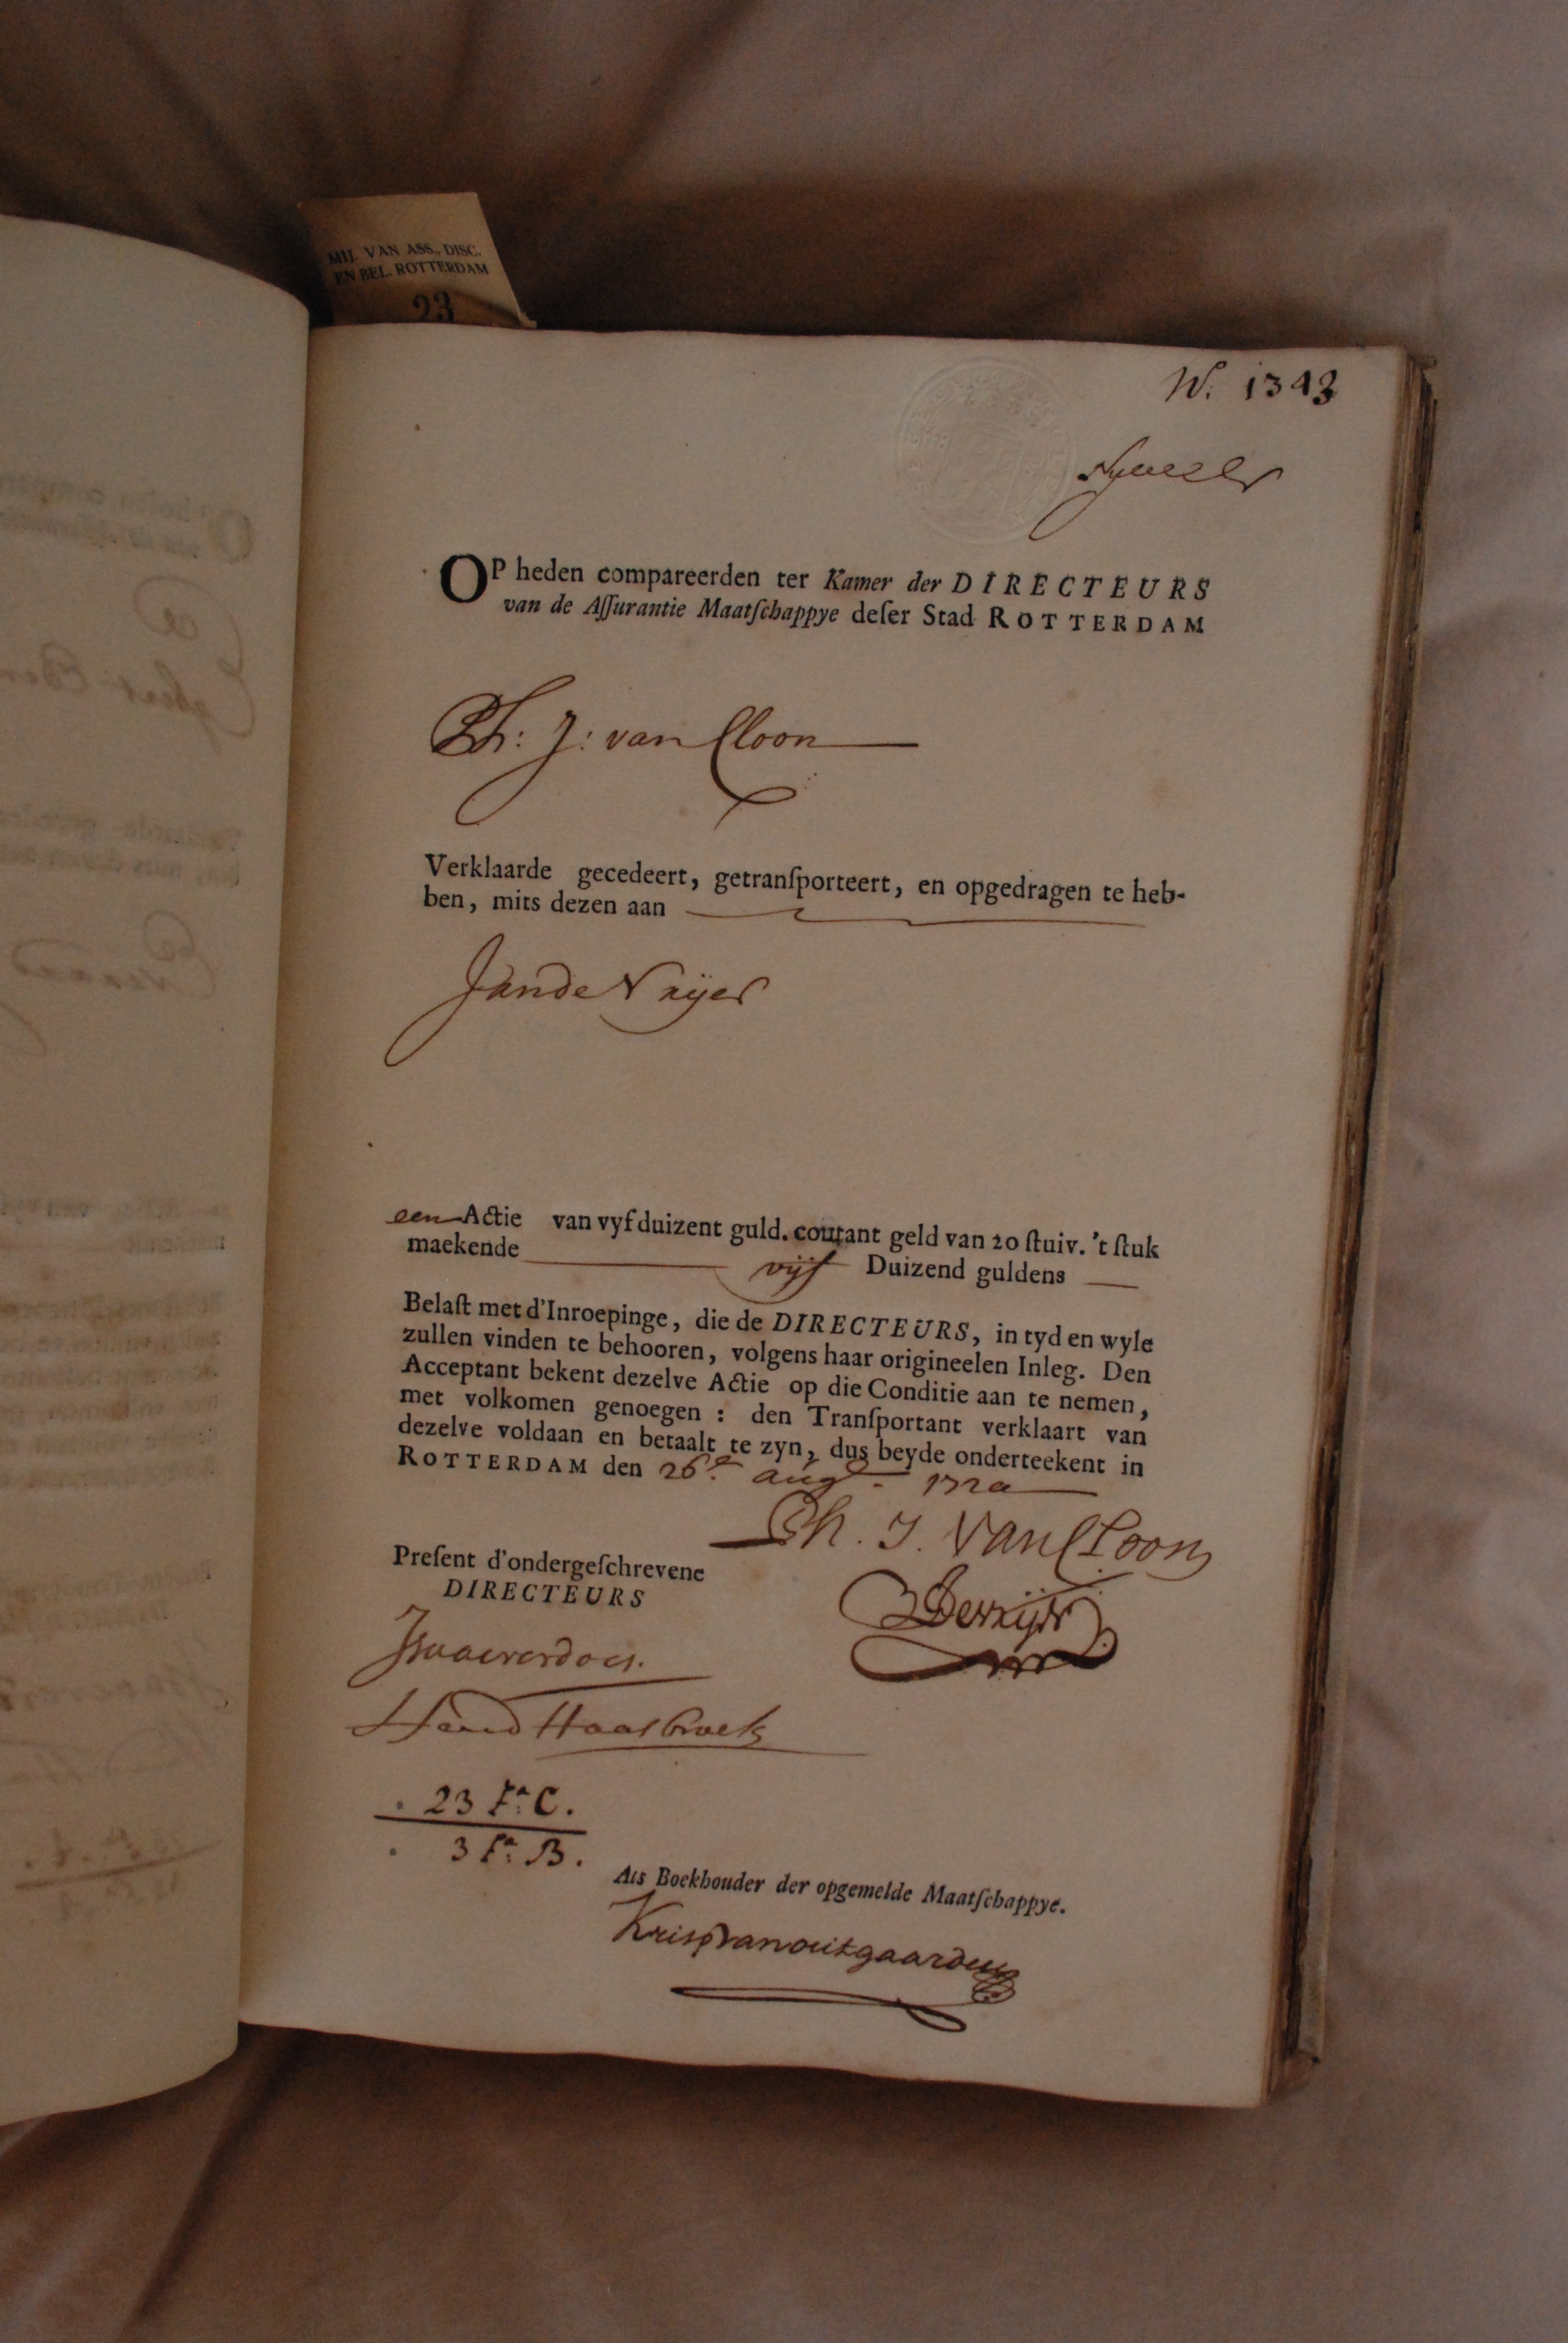 MIJ. VAN ASS., DISC.
EN BEL. ROTTERDAM
23
N. 1343
OP heden compareerden ter Kamer der DIRECTEURS
van de Aſſurantie Maatſchappye deſer Stad ROTTERDAM
Ph: J: van Cloon
Verklaarde gecedeert, getranſporteert, en opgedragen te heb-
ben, mits dezen aan
Jan de
een Actie van vyf duizent guld. courant geld van 20 ſtuiv. 't ſtuk
maekende vijf Duizend guldens
Belaſt met d'Inroepinge, die de DIRECTEURS, in tyd en wyle
zullen vinden te behooren, volgens haar origineelen Inleg. Den
Acceptant bekent dezelve Actie op die Conditie aan te nemen,
met volkomen genoegen : den Tranſportant verklaart van
dezelve voldaan en betaalt te zyn, dus beyde onderteekent in
ROTTERDAM den 26.e aug.
Ph. J. Van Cloon
Preſent d'ondergeſchrevene
DIRECTEURS
Hend Haasbroek
23 Fo: C.
3 Fo: B.
Als Boekhouder der opgemelde Maatſchappye.